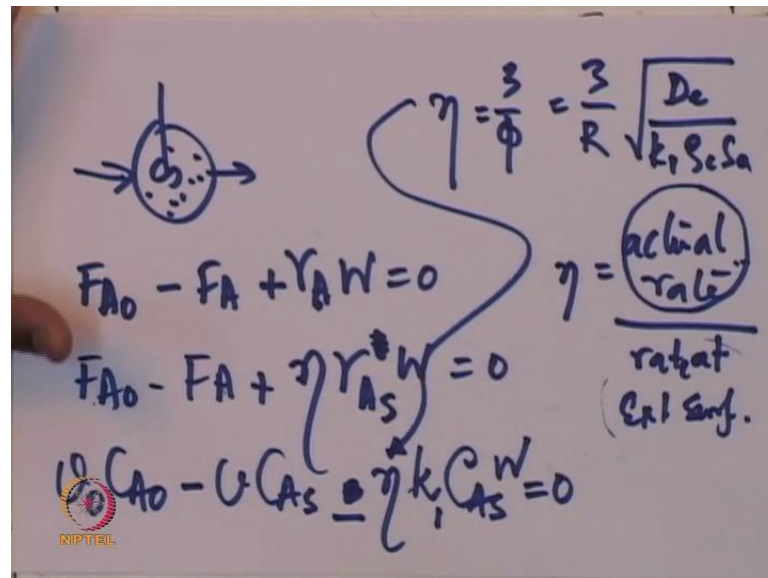 η = 3/Φ = 3/R √(De/(k₁ ρc Sa))
F_A0 - F_A + r_A W = 0
η = actual rate / rate at Ext surf.
F_A0 - F_A + η r*_As W = 0
υ₀ C_A0 - υ C_As - η k₁ C_As W = 0
NPTEL